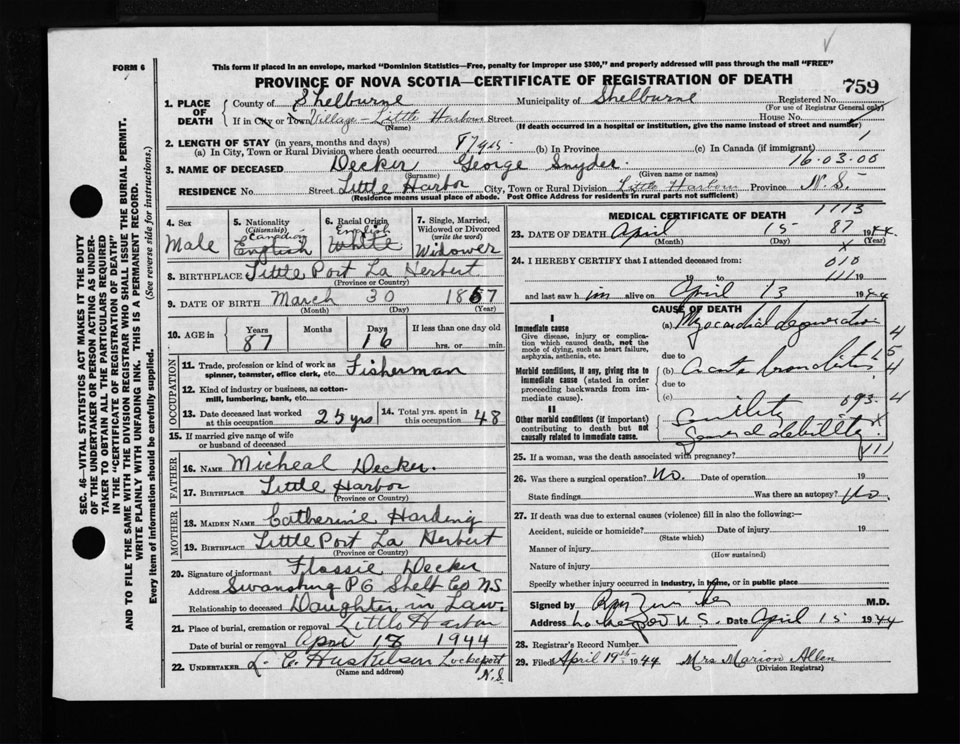 FORM 6
This form if placed in an envelope, marked "Dominion Statistics—Free, penalty for improper use $300," and properly addressed will pass through the mail "FREE"
PROVINCE OF NOVA SCOTIA—CERTIFICATE OF REGISTRATION OF DEATH
759
1. PLACE OF DEATH
County of Shelburne Municipality of Shelburne Registered No.
(For use of Registrar General only)
If in City or Town Village - Little Harbour Street House No.
(Name) (If death occurred in a hospital or institution, give the name instead of street and number)
2. LENGTH OF STAY (in years, months and days)
(a) In City, Town or Rural Division where death occurred 87 yrs. (b) In Province (c) In Canada (if immigrant) 1
3. NAME OF DECEASED Decker George Snyder. 16-03-00
(Surname) (Given name or names)
RESIDENCE No. Street Little Harbor City, Town or Rural Division Little Harbour Province N.S.
Residence means usual place of abode. Post Office Address for residents in rural parts not sufficient)
4. Sex
Male
5. Nationality
(Citizenship)
Canadian
English
6. Racial Origin
English
White
7. Single, Married, Widowed or Divorced
(write the word)
Widower
8. BIRTHPLACE Little Port La Herbert
(Province or Country)
9. DATE OF BIRTH March 30 1857
(Month) (Day) (Year)
10. AGE in
Years 87
Months
Days 16
If less than one day old
hrs. or min.
OCCUPATION
11. Trade, profession or kind of work as spinner, teamster, office clerk, etc. Fisherman
12. Kind of industry or business, as cotton-mill, lumbering, bank, etc.
13. Date deceased last worked at this occupation 25 yrs
14. Total yrs. spent in this occupation 48
15. If married give name of wife or husband of deceased
FATHER
16. NAME Micheal Decker.
17. BIRTHPLACE Little Harbor
(Province or Country)
MOTHER
18. MAIDEN NAME Catherine Harding
19. BIRTHPLACE Little Port La Herbert
(Province or Country)
20. Signature of informant Flossie Decker
Address Swansburg P O Shelb Co NS
Relationship to deceased Daughter in Law.
21. Place of burial, cremation or removal Little Harbor
Date of burial or removal Apri 18 1944
22. UNDERTAKER L. C. Huskilson Lockeport N.S
(Name and address)
MEDICAL CERTIFICATE OF DEATH
1113
23. DATE OF DEATH April 15 87 1944
(Month) (Day) (Year)
x
24. I HEREBY CERTIFY that I attended deceased from:
010
19 to 111 19
and last saw him alive on April 13 1944
CAUSE OF DEATH
I
Immediate cause
Give disease, injury or complication which caused death, not the mode of dying, such as heart failure, asphyxia, asthenia, etc.
(a) Myocardial degeneration 4
due to 5
Morbid conditions, if any, giving rise to immediate cause (stated in order proceeding backwards from immediate cause).
(b) bronchitis 4
due to
(c) 093- 4
II
Other morbid conditions (if important) contributing to death but not causally related to immediate cause.
Senility x
General debility.
111
25. If a woman, was the death associated with pregnancy?
26. Was there a surgical operation? No. Date of operation 19
State findings Was there an autopsy? No
27. If death was due to external causes (violence) fill in also the following:—
Accident, suicide or homicide? Date of injury 19
(State which)
Manner of injury
(How sustained)
Nature of injury
Specify whether injury occurred in industry, in home, or in public place
Signed by M.D.
Address N.S. Date April 15 1944
28. Registrar's Record Number
29. Filed April 19th 1944 Mrs Marion Allen
(Division Registrar)
SEC. 46—VITAL STATISTICS ACT MAKES IT THE DUTY
OF THE UNDERTAKER OR PERSON ACTING AS UNDERTAKER TO OBTAIN ALL THE PARTICULARS REQUIRED
IN THE "CERTIFICATE OF REGISTRATION OF DEATH"
AND TO FILE THE SAME WITH THE DIVISION REGISTRAR WHO SHALL ISSUE THE BURIAL PERMIT.
WRITE PLAINLY WITH UNFADING INK. THIS IS A PERMANENT RECORD.
Every item of information should be carefully supplied. (See reverse side for instructions.)